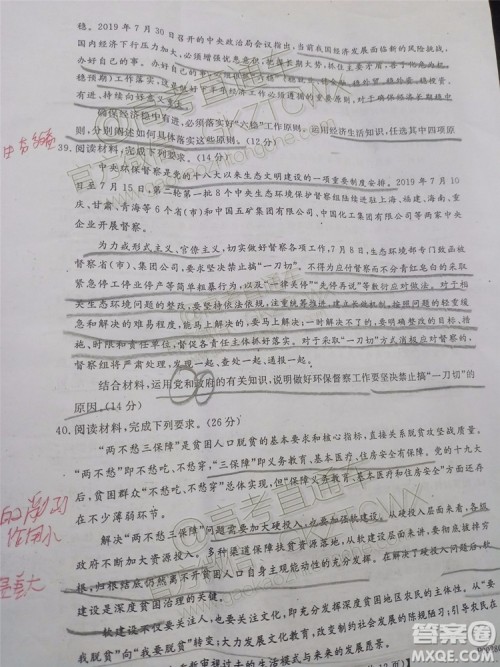 稳。2019年7月30召开的中央政治局会议指出，当前我国经济发展面临新的风险挑战，
国内经济下行压力加大，必须增强忧患意识，把握长期大势，抓住主要矛盾，善于化危为机，
办好自己的事。
稳预期）工作落实，
有进、持续向好意义重大。
确保经济稳中有进，必须落实好“六稳”工作原则。运用经济生活知识，任选其中四项原
则，分别阐述如何具体落实这些原则。(12分)
39. 阅读材料，完成下列要求。(14分)
中央环保督察是党的十八大以来生态文明建设的一项重要制度安排。2019年7月10
日至7月15日，第二轮第一批8个中央生态环境保护督察组陆续进驻上海、福建、海南、重
庆、甘肃、青海等6个省(市)和中国五矿集团有限公司、中国化工集团有限公司等两家中央
企业开展督察。
为力戒形式主义、官僚主义，切实做好督察各项工作，7月8日，生态环境部专门致函被
督察省(市)、集团公司，要求坚决禁止搞“一刀切”。不得为应付督察而不分青红皂白的采取
紧急停工停业停产等简单粗暴行为，以及“一律关停”“先停再说”等敷衍应对做法。对于相
关生态环境问题的整改，要坚持依法依规，注重统筹推进，建立长效机制，按照问题的轻重缓
急和解决的难易程度，能马上解决的，要马上解决；一时解决不了的，要明确整改的目标、措
施、时限和责任单位，督促各责任主体抓好落实。对于采取“一刀切”方式消极应对督察的，
督察组将严肃处理，发现一起，查处一起。
结合材料，运用党和政府的有关知识，说明做好环保督察工作要坚决禁止搞“一刀切”的
原因。(14分)
40. 阅读材料，完成下列要求。(26分)
“两不愁三保障”是贫困人口脱贫的基本要求和核心指标，直接关系脱贫攻坚战质量。
“两不愁”即不愁吃、不愁穿，“三保障”即义务教育、基本医疗、住房安全有保障。党的十九大
后，贫困群众“不愁吃、不愁穿”总体实现，但在义务教育、基本医疗和住房安全“方面还存
在不少薄弱环节。
解决“两不愁三保障”问题需要加大硬投入，也要加强软建设。从硬投入层面来看，各级
政府不断加大资源投入，多种渠道保障扶贫资源落地。从软建设层面来讲，要解决贫困问
题，归根结底仍然离不开贫困人口自身主观能动性的充分发挥。在进行了硬投入后，软
建设是深度贫困治理的关键。
软建设不仅要关注人，也要关注文化，即充分发挥深度贫困地区农民的主体性，从“要
我脱贫”向“我要脱贫”转变；大力发展文化教育，改变制约社会发展的陈规陋习；引导农民在
新审视过去的生活模式与未来的发展愿景。